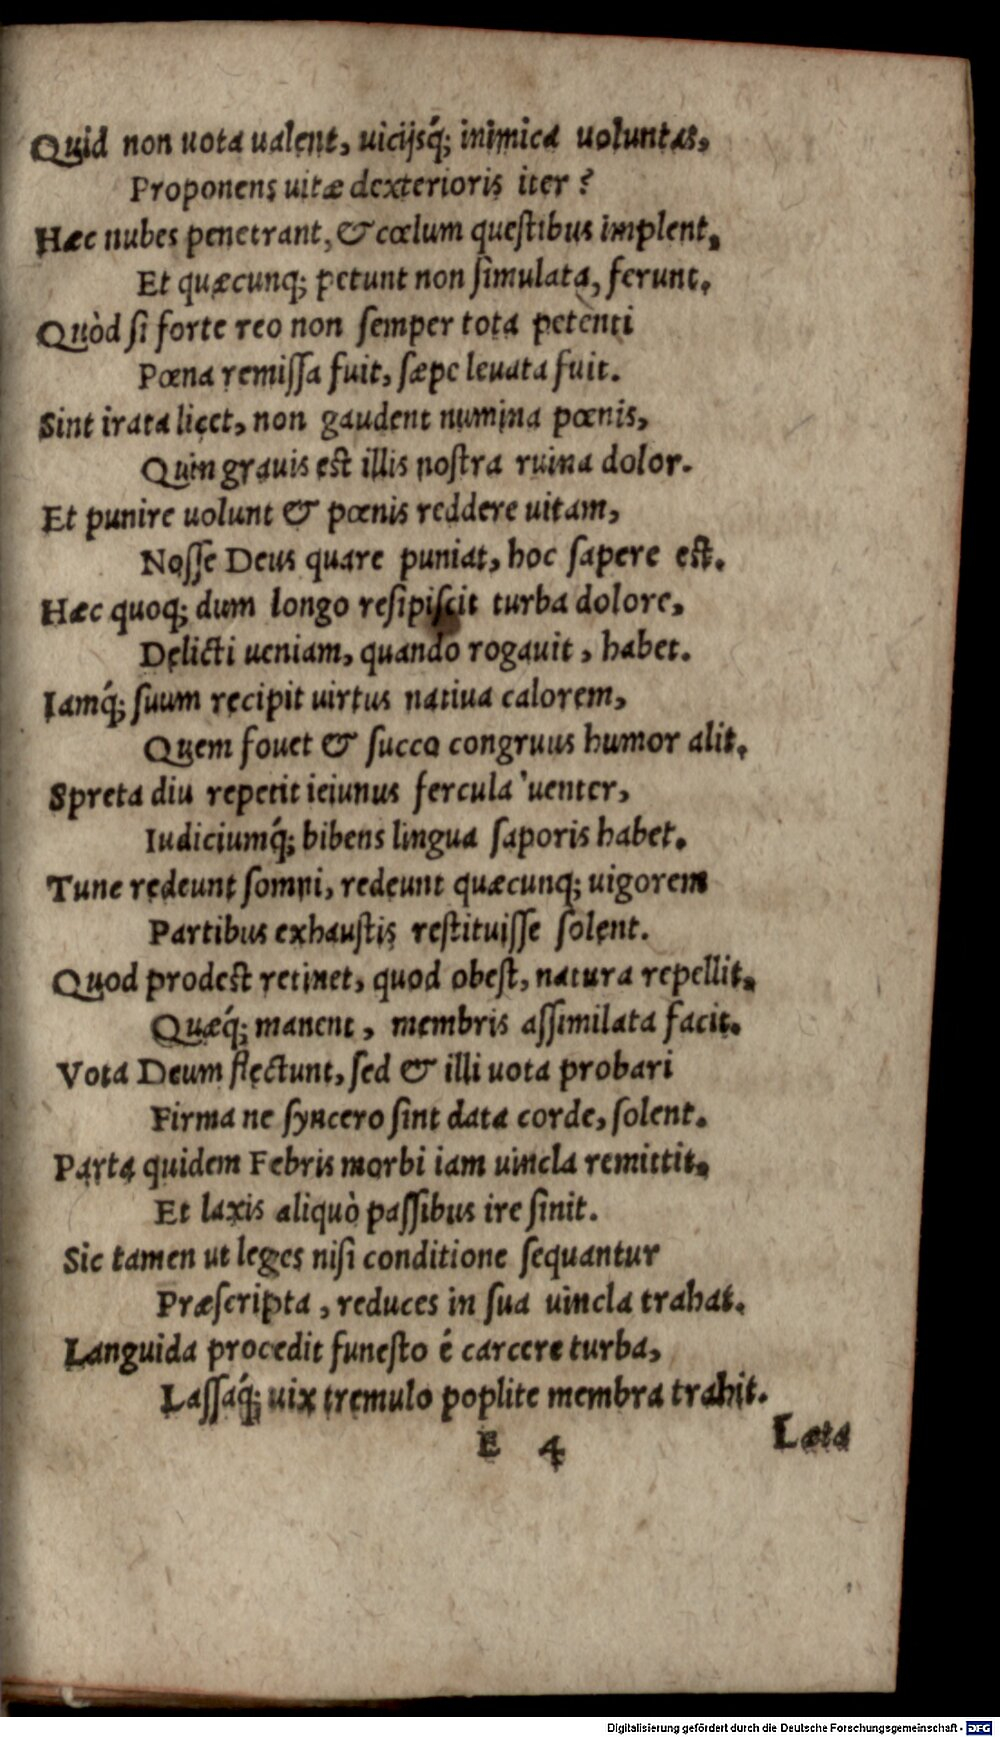 Quid non uota ualent, uicijsq́; inimica uoluntas,
Proponens uitæ dexterioris iter?
Hæc nubes penetrant, & cœlum questibus implent,
Et quæcunq; petunt non simulata, ferunt.
Quòd si forte reo non semper tota petenti
Pœna remissa fuit, sæpe leuata fuit.
Sint irata licet, non gaudent numina pœnis,
Quin grauis est illis nostra ruina dolor.
Et punire uolunt & pœnis reddere uitam,
Nosse Deus quare puniat, hoc sapere est.
Hæc quoq; dum longo resipiscit turba dolore,
Delicti ueniam, quando rogauit, habet.
Iamq́; suum recipit uirtus natiua calorem,
Quem fouet & succo congruus humor alit.
Spreta diu repetit ieiunus fercula uenter,
Iudiciumq́; bibens lingua saporis habet.
Tunc redeunt somni, redeunt quæcunq; uigorem
Partibus exhaustis restituisse solent.
Quod prodest retinet, quod obest, natura repellit,
Quæq́; manent, membris assimilata facit.
Vota Deum flectunt, sed & illi uota probari
Firma ne syncero sint data corde, solent.
Parta quidem Febris morbi iam uincla remittit,
Et laxis aliquò passibus ire sinit.
Sic tamen ut leges nisi conditione sequantur
Præscripta, reduces in sua uincla trahat.
Languida procedit funesto é carcere turba,
Lassaq́; uix tremulo poplite membra trahit.
E 4 Læta
Digitalisierung gefördert durch die Deutsche Forschungsgemeinschaft - DFG